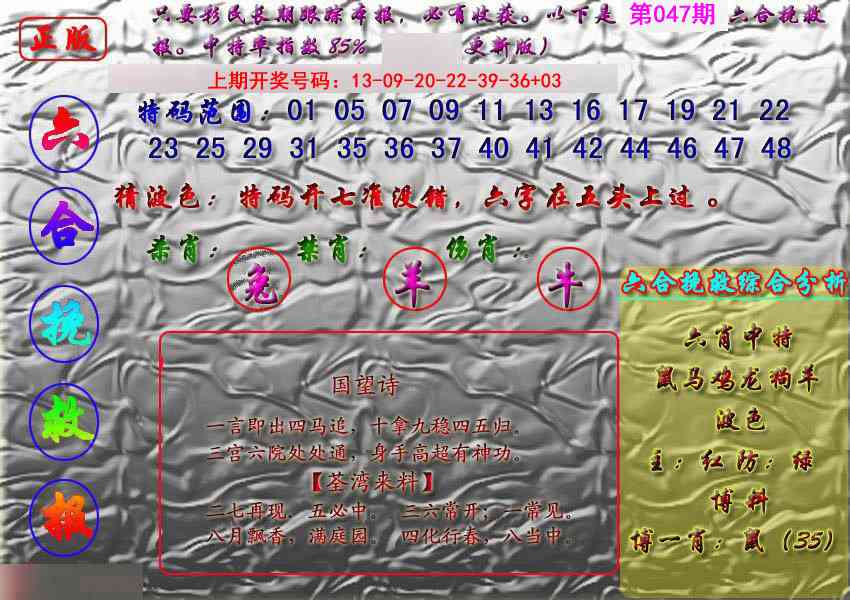 正版
只要彩民长期跟踪本报，必有收获。以下是 第047期 六合挽救
报。中特率指数85% 更新版）
上期开奖号码：13-09-20-22-39-36+03
特码范围：01 05 07 09 11 13 16 17 19 21 22
23 25 29 31 35 36 37 40 41 42 44 46 47 48
猜波色：特码开七准没错，六字在五头上过。
杀肖： 禁肖： 伤肖：
兔 羊 牛
六合挽救报
国望诗
一言即出四马追，十拿九稳四五归。
三宫六院处处通，身手高超有神功。
【荃湾来料】
二七再现，五必中。 三六常开；一常见。
八月飘香，满庭园。 四化行春，八当中。
六合挽救综合分析
六肖中特
鼠马鸡龙狗羊
波色
主：红防：绿
博料
博一肖：鼠（35）